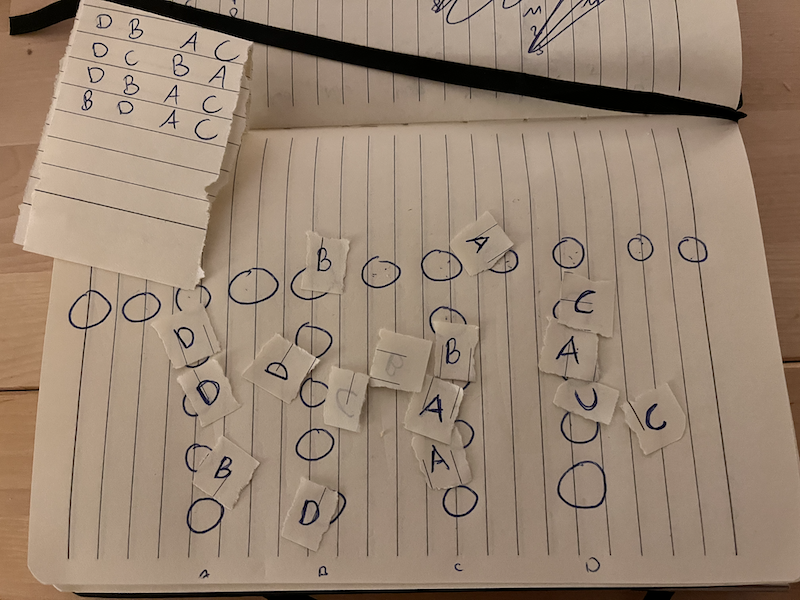 D B A C
D C B A
D B A C
B D A C
B A
C
D B A
D B
D A C C
A
B
D
A B C D